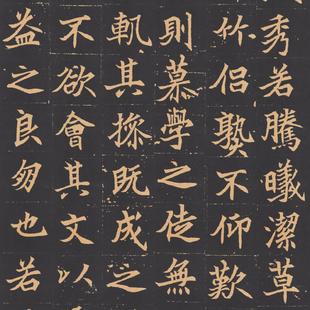 秀若騰曦潔草
竹侣孰不仰歎
則慕學之徒無
軌其操既成之
不欲會其文以
益之良也若